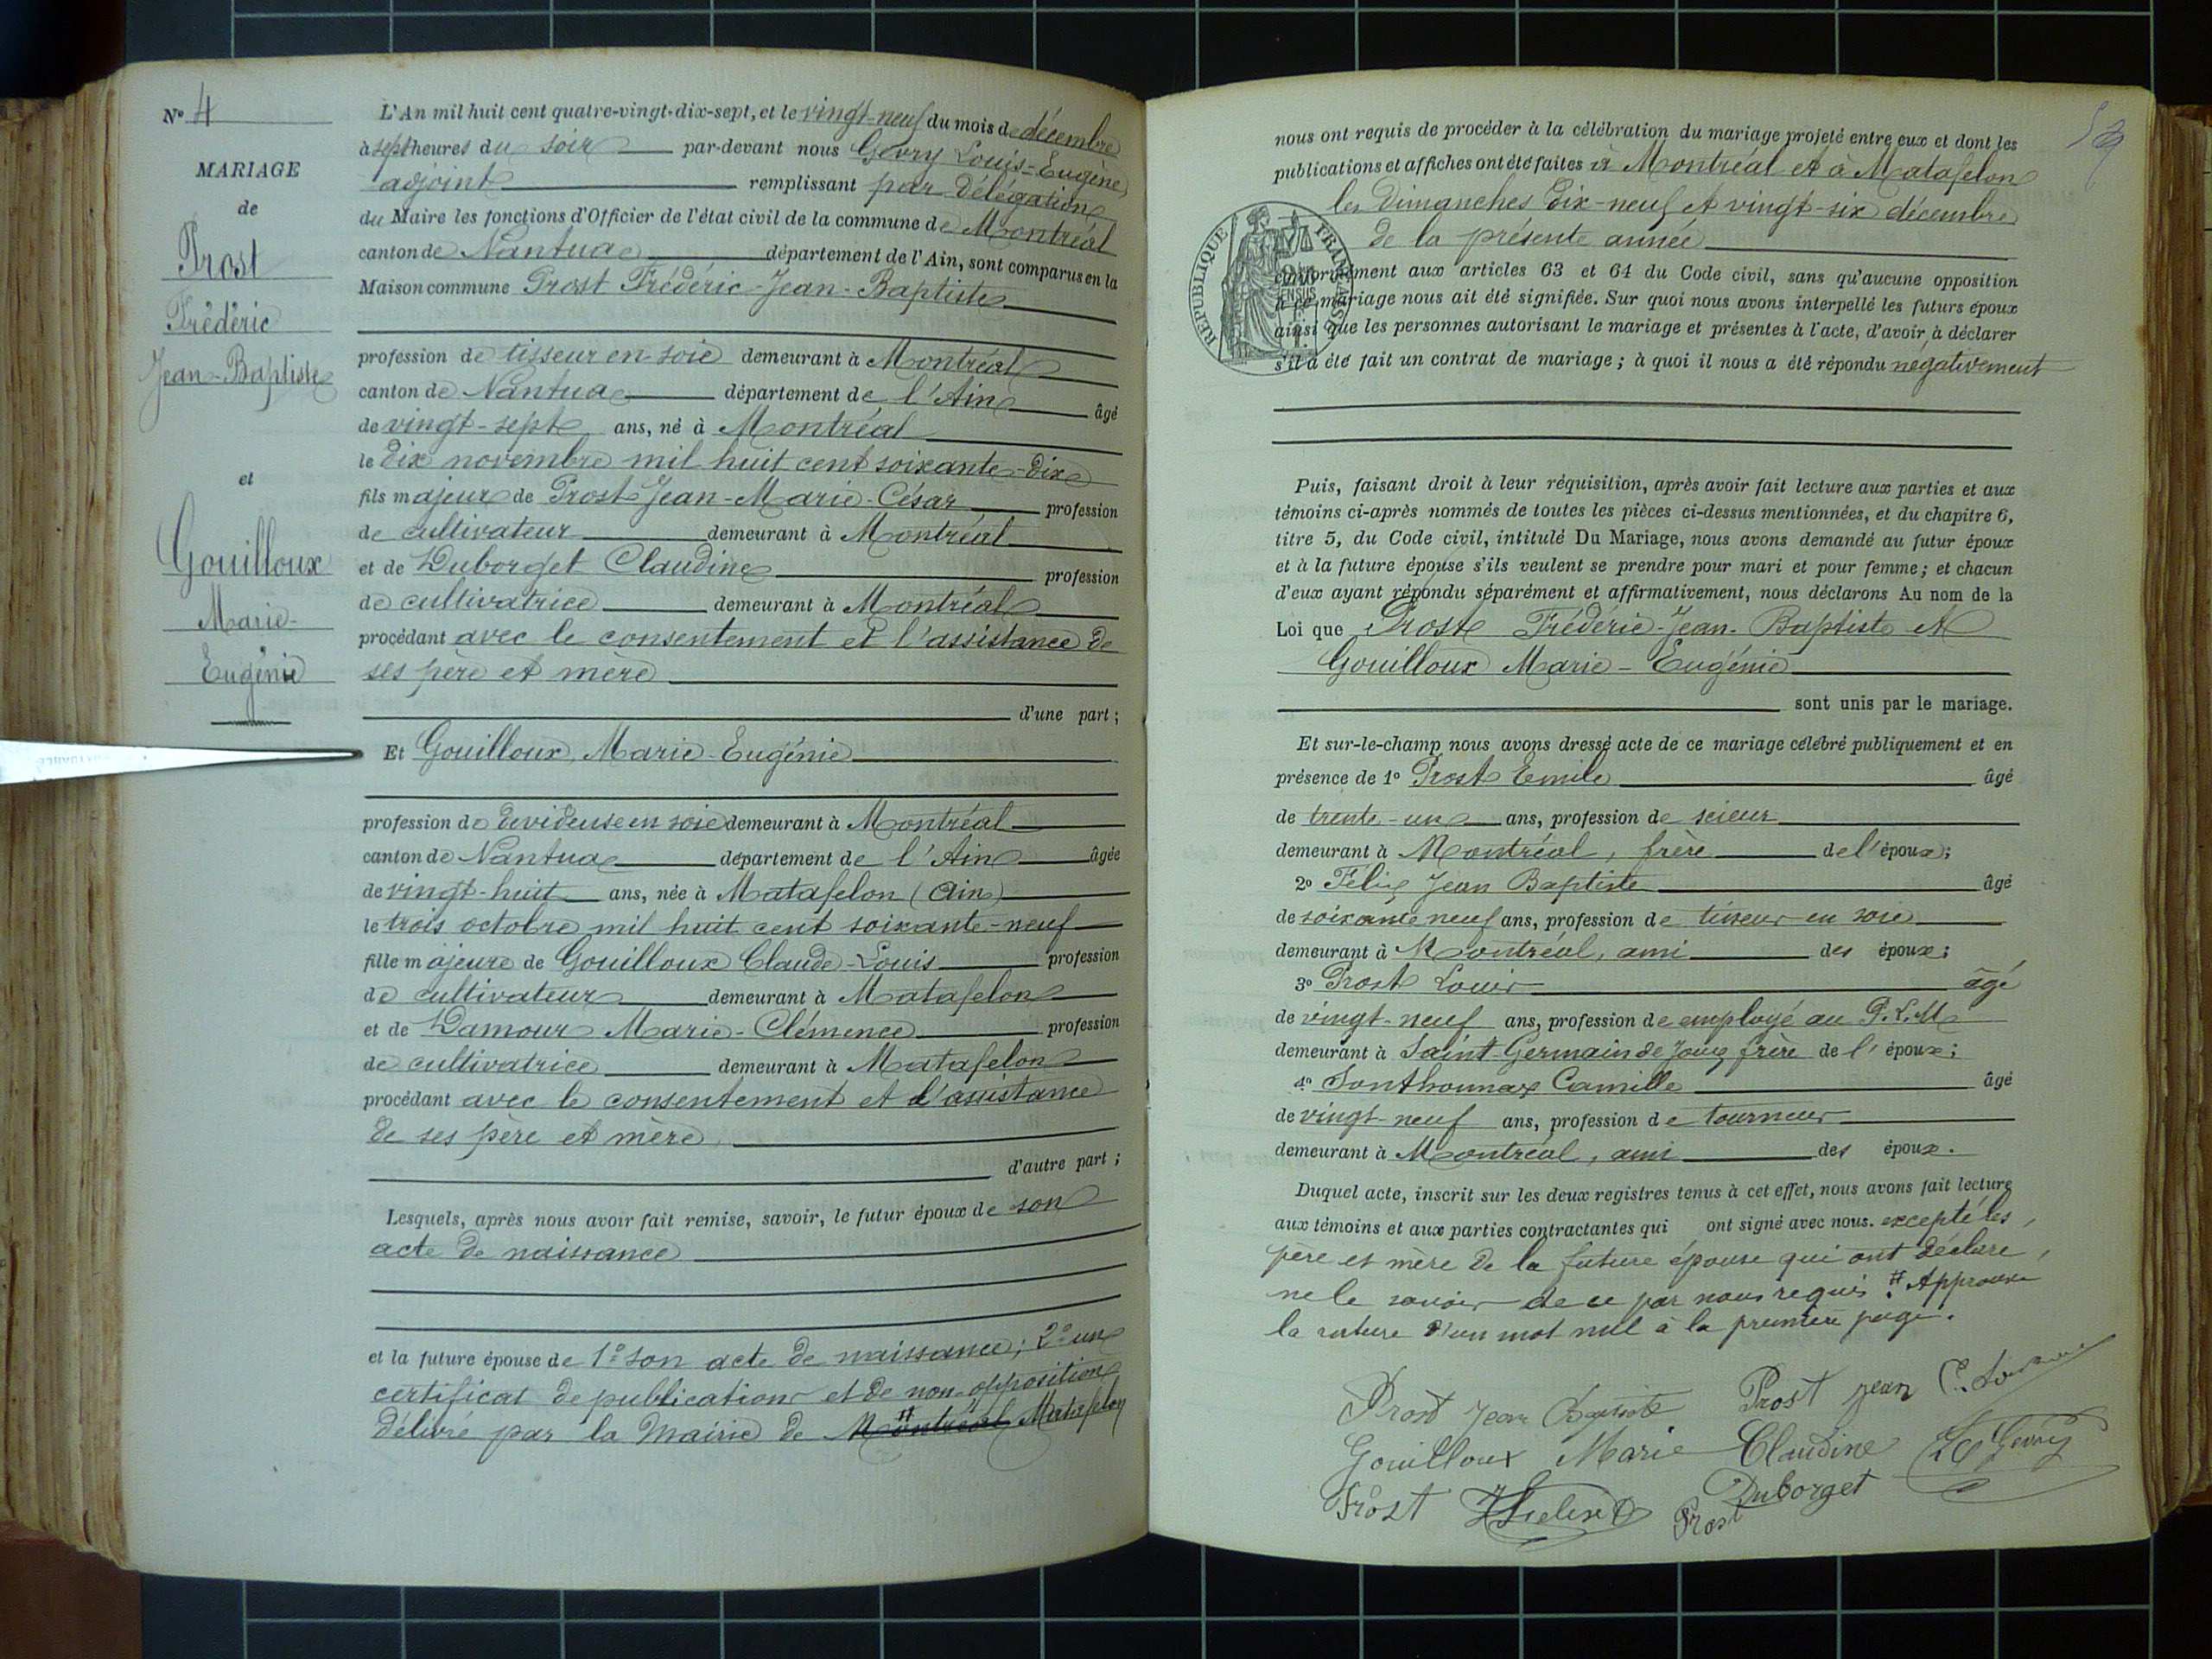 Nº 4
MARIAGE
de
Prost
Frédéric
Jean-Baptiste
et
Gouilloux
Marie-
Eugénie
L'An mil huit cent quatre-vingt-dix-sept, et le vingt-neuf du mois de décembre
à sept heures du soir par-devant nous Gevry Louis-Eugène
adjoint remplissant par délégation
du Maire les fonctions d'Officier de l'état civil de la commune de Montréal
canton de Nantua département de l'Ain, sont comparus en la
Maison commune Prost Frédéric-Jean-Baptiste
profession de tisseur en soie demeurant à Montréal
canton de Nantua département de l'Ain âgé
de vingt-sept ans, né à Montréal
le dix novembre mil huit cent soixante-dix
fils majeur de Prost Jean-Marie-César profession
de cultivateur demeurant à Montréal
et de Duborget Claudine profession
de cultivatrice demeurant à Montréal
procédant avec le consentement et l'assistance de
ses père et mère
d'une part;
Et Gouilloux, Marie-Eugénie
profession de devideuse en soie demeurant à Montréal
canton de Nantua département de l'Ain âgée
de vingt-huit ans, née à Matafelon (Ain)
le trois octobre mil huit cent soixante-neuf
fille majeure de Gouilloux Claude-Louis profession
de cultivateur demeurant à Matafelon
et de Damour Marie-Clémence profession
de cultivatrice demeurant à Matafelon
procédant avec le consentement et l'assistance
de ses père et mère
d'autre part;
Lesquels, après nous avoir fait remise, savoir, le futur époux de son
acte de naissance
et la future épouse de 1º son acte de naissance; 2º un
certificat de publication et de non-opposition
délivré par la Mairie de Montréal Matafelon
nous ont requis de procéder à la célébration du mariage projeté entre eux et dont les
publications et affiches ont été faites à Montréal et à Matafelon
les dimanches dix-neuf et vingt-six décembre
de la présente année
RÉPUBLIQUE FRANÇAISE
conformément aux articles 63 et 64 du Code civil, sans qu'aucune opposition
à ce mariage nous ait été signifiée. Sur quoi nous avons interpellé les futurs époux
ainsi que les personnes autorisant le mariage et présentes à l'acte, d'avoir à déclarer
s'il a été fait un contrat de mariage; à quoi il nous a été répondu négativement
Puis, faisant droit à leur réquisition, après avoir fait lecture aux parties et aux
témoins ci-après nommés de toutes les pièces ci-dessus mentionnées, et du chapitre 6,
titre 5, du Code civil, intitulé Du Mariage, nous avons demandé au futur époux
et à la future épouse s'ils veulent se prendre pour mari et pour femme; et chacun
d'eux ayant répondu séparément et affirmativement, nous déclarons Au nom de la
Loi que Prost Frédéric-Jean-Baptiste et
Gouilloux Marie-Eugénie
sont unis par le mariage.
Et sur-le-champ nous avons dressé acte de ce mariage célébré publiquement et en
présence de 1º Prost Emile âgé
de trente-un ans, profession de scieur
demeurant à Montréal, frère de l'époux;
2º Félix Jean Baptiste âgé
de soixante neuf ans, profession de tisseur en soie
demeurant à Montréal, ami des époux;
3º Prost Louis âgé
de vingt-neuf ans, profession de employé au P.L.M
demeurant à Saint-Germain de Joux frère de l'époux;
4º Sonthonnax Camille âgé
de vingt-neuf ans, profession de tourneur
demeurant à Montréal, ami des époux.
Duquel acte, inscrit sur les deux registres tenus à cet effet, nous avons fait lecture
aux témoins et aux parties contractantes qui ont signé avec nous. excepté les
père et mère de la future épouse qui ont déclaré
ne le savoir de ce par nous requis. # Approuvé
la rature d'un mot nul à la première page.
Prost Jean Baptiste Prost jean
Gouilloux Marie Claudine Gevry
Prost Duborget
Prost